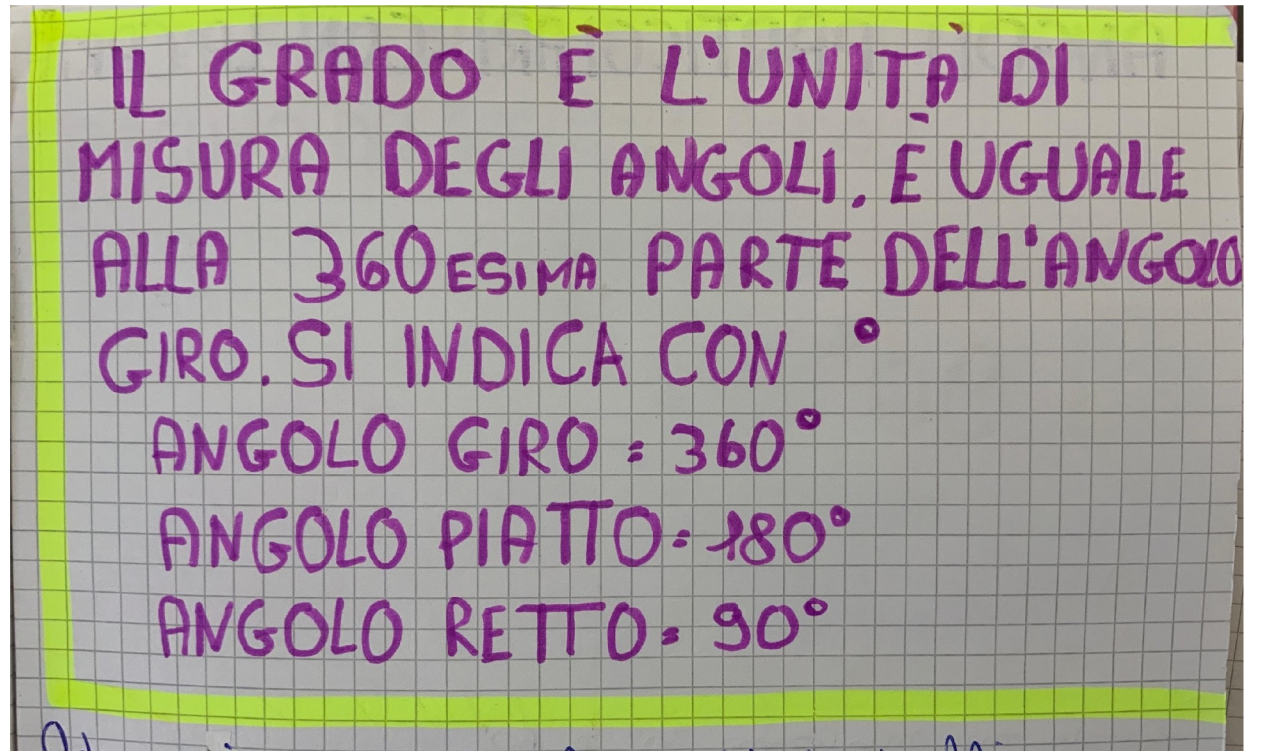 IL GRADO È L'UNITÀ DI
MISURA DEGLI ANGOLI. È UGUALE
ALLA 360ESIMA PARTE DELL'ANGOLO
GIRO. SI INDICA CON °
ANGOLO GIRO = 360°
ANGOLO PIATTO = 180°
ANGOLO RETTO = 90°